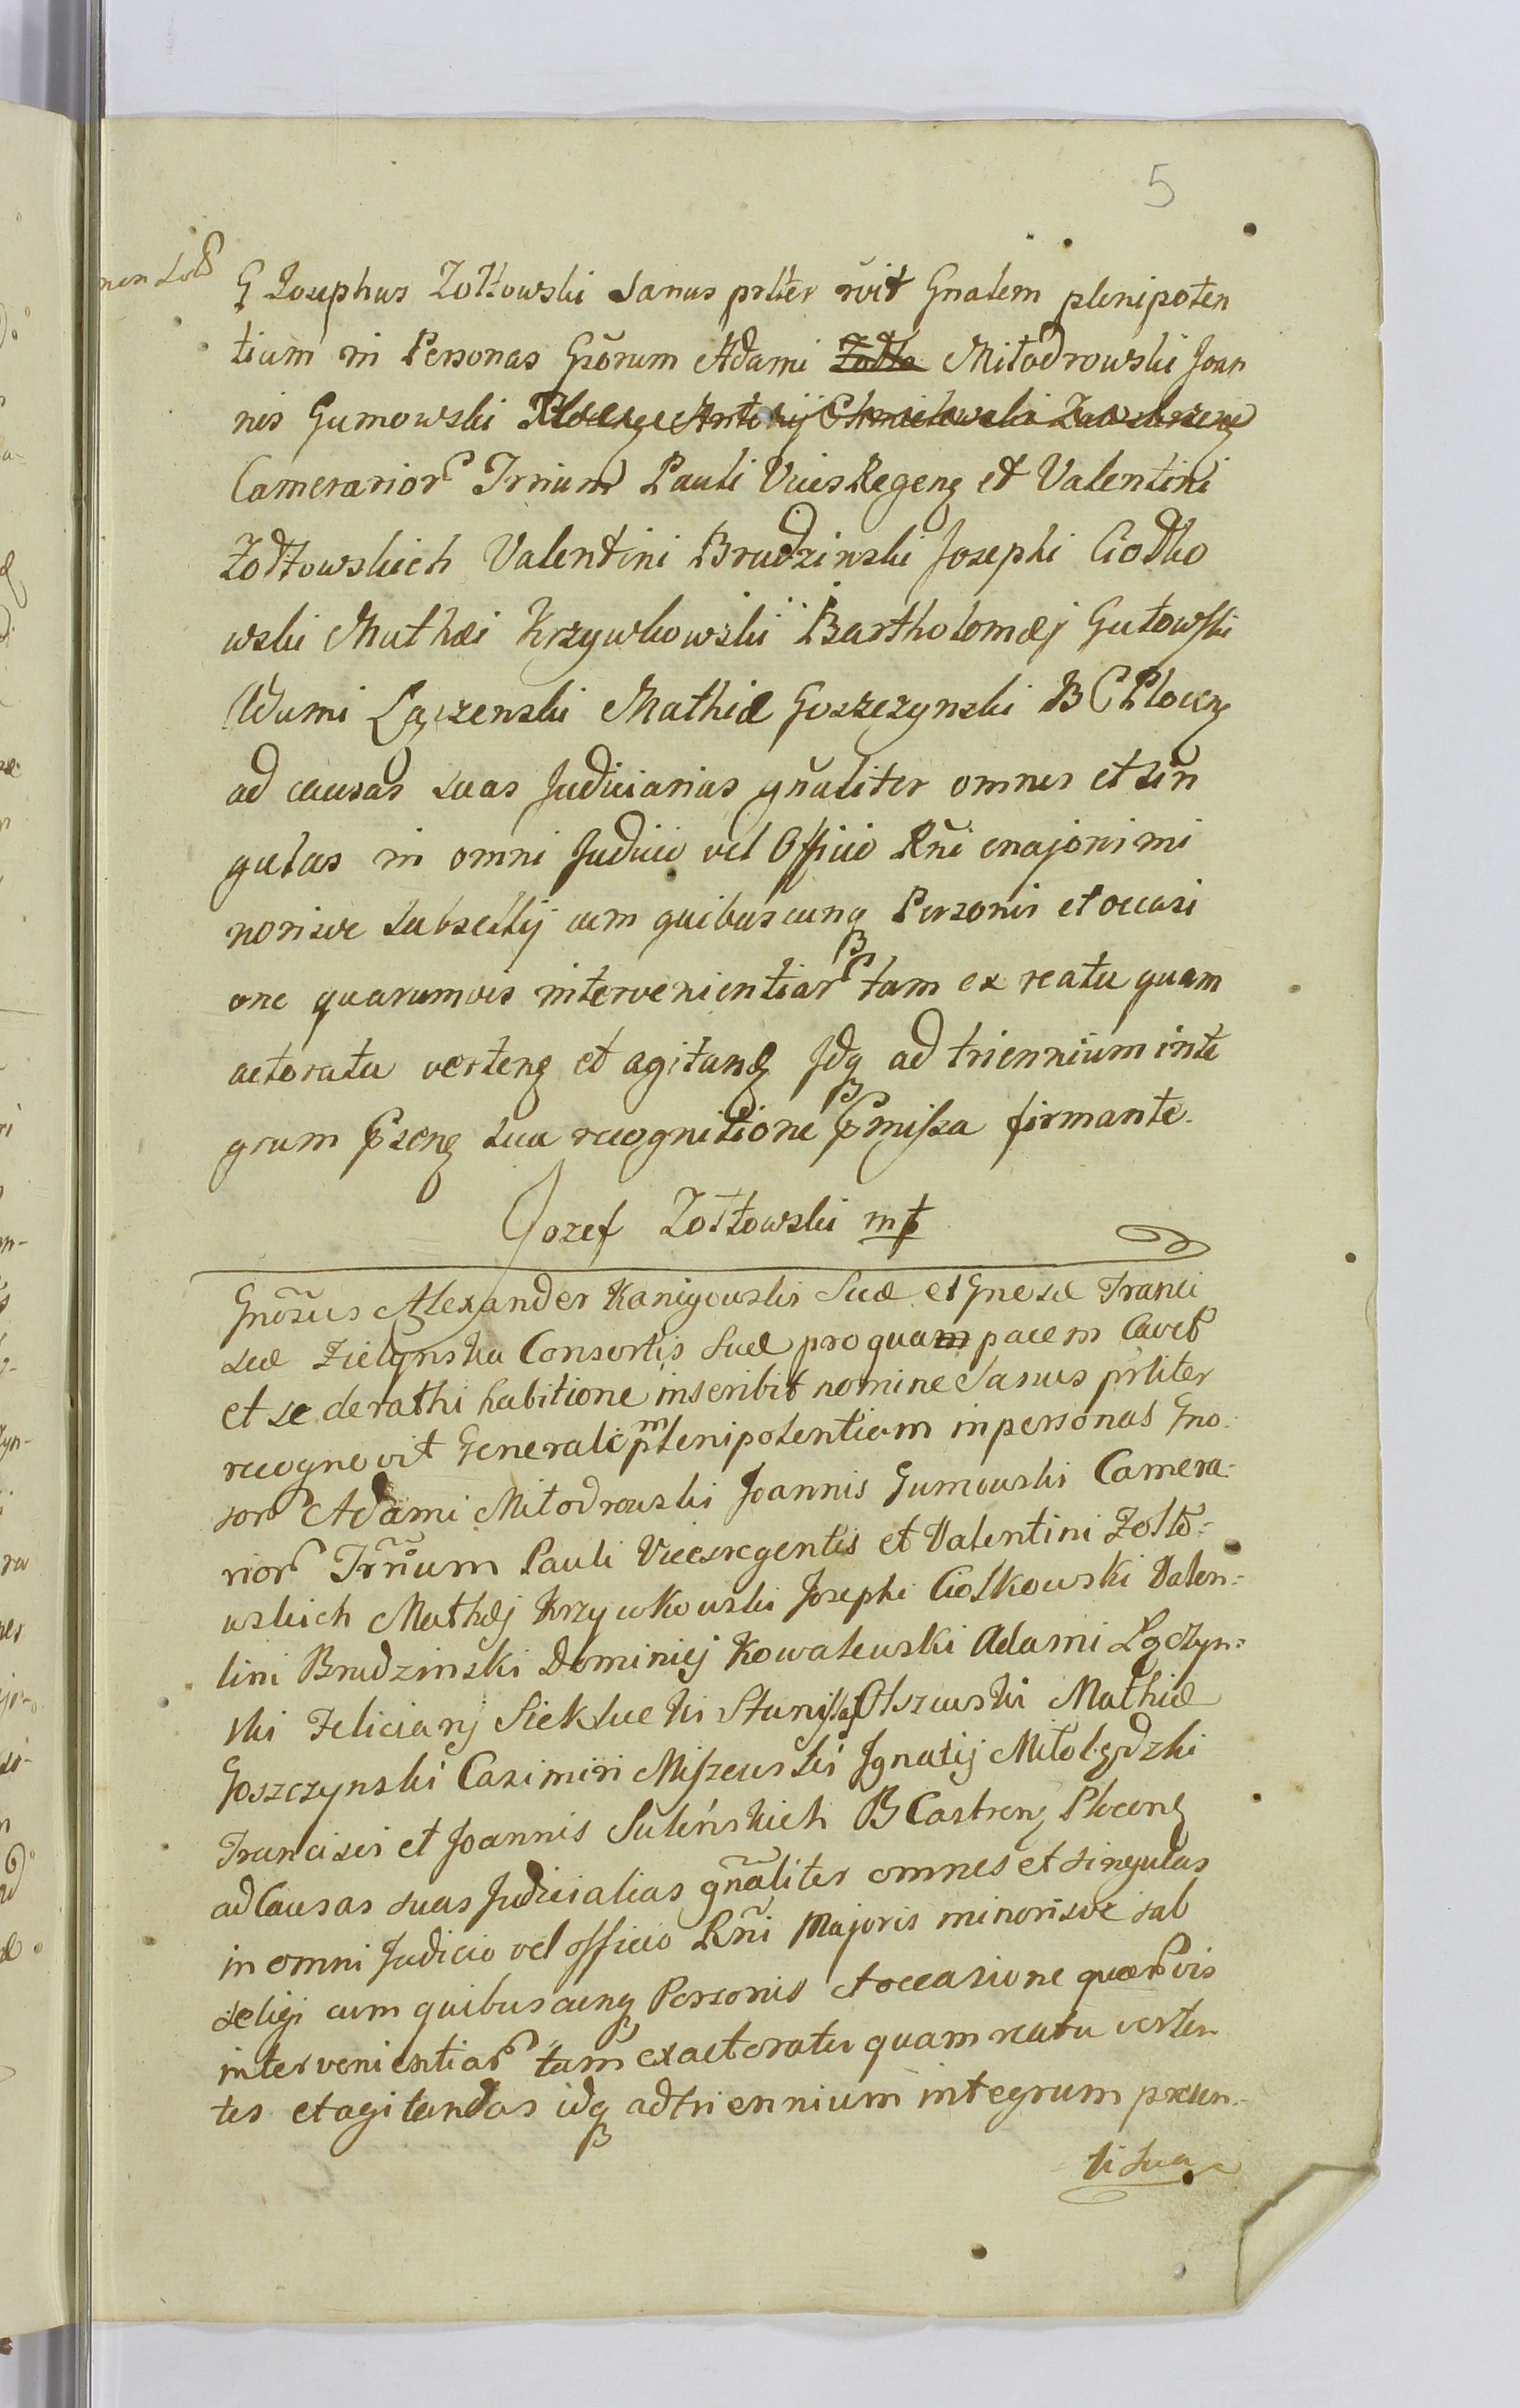 5
non sol
G Josephus Zołtowski Sanus prlter rvit Gnalem plenipoten
tiam in Personas Gsorum Adami Zołto Miłodrowski Joan
nis Gumowski Antonij Chmielewski
Camerarior Trrium Pauli Vices Regens et Valentini
Zołtowskich Valentini Brudzinski Josephi Ciołko
wski Mathæi Krzywkowskii Bartholomæj Gutowski
Adami Łączenski Mathiæ Goszczynski B C Plocens
ad causas suas Judiciarias gnaliter omnes et sin
gulas in omni Judicio vel Officio Rñi majoris mi
norisve subsellij cum quibuscunq Personis et occasi
one quarumvis intervenientiar tam ex reatu quam
actoratu verteng et agitand Idq ad triennium inte
grum pszeng sua recognitione pmissa firmante.
Jozef Zołtowski mp
Gnosus Alexander Kanigowski Suæ et Gnesæ Franci
scæ Zielynska Consortis suæ pro qua pacem cavet
et se de rathi habitione inscribit nomine Sanus prliter
recognovit Generalem plenipotentiam in personas Gno
sor Adami Miłodrowski Joannis Gumowski Camera-
rior Trrium Pauli Vicesregentis et Valentini Zołto=
wskich Mathæj Krzywkowski Josephi Ciołkowski Valen=
tini Brudzinski Dominicj Kowalewski Adami Łączyn=
ski Feliciani Sieklucki Stanislaj Olszewski Mathiæ
Goszczynski Casimiri Miszewski Ignatij Miłobędzki
Francisci et Joannis Suleńskich B Castrens Plocens
ad Causas suas Judicialias gñaliter omnes et singulas
in omni Judicio vel officio Rñi Majoris minorisve sub
seligi cum quibuscunq Personis et occasione quarvis
intervenientiar tam ex actoratu quam reatu verten
tes et agitandas idq ad triennium integrum præsen-
ti sua